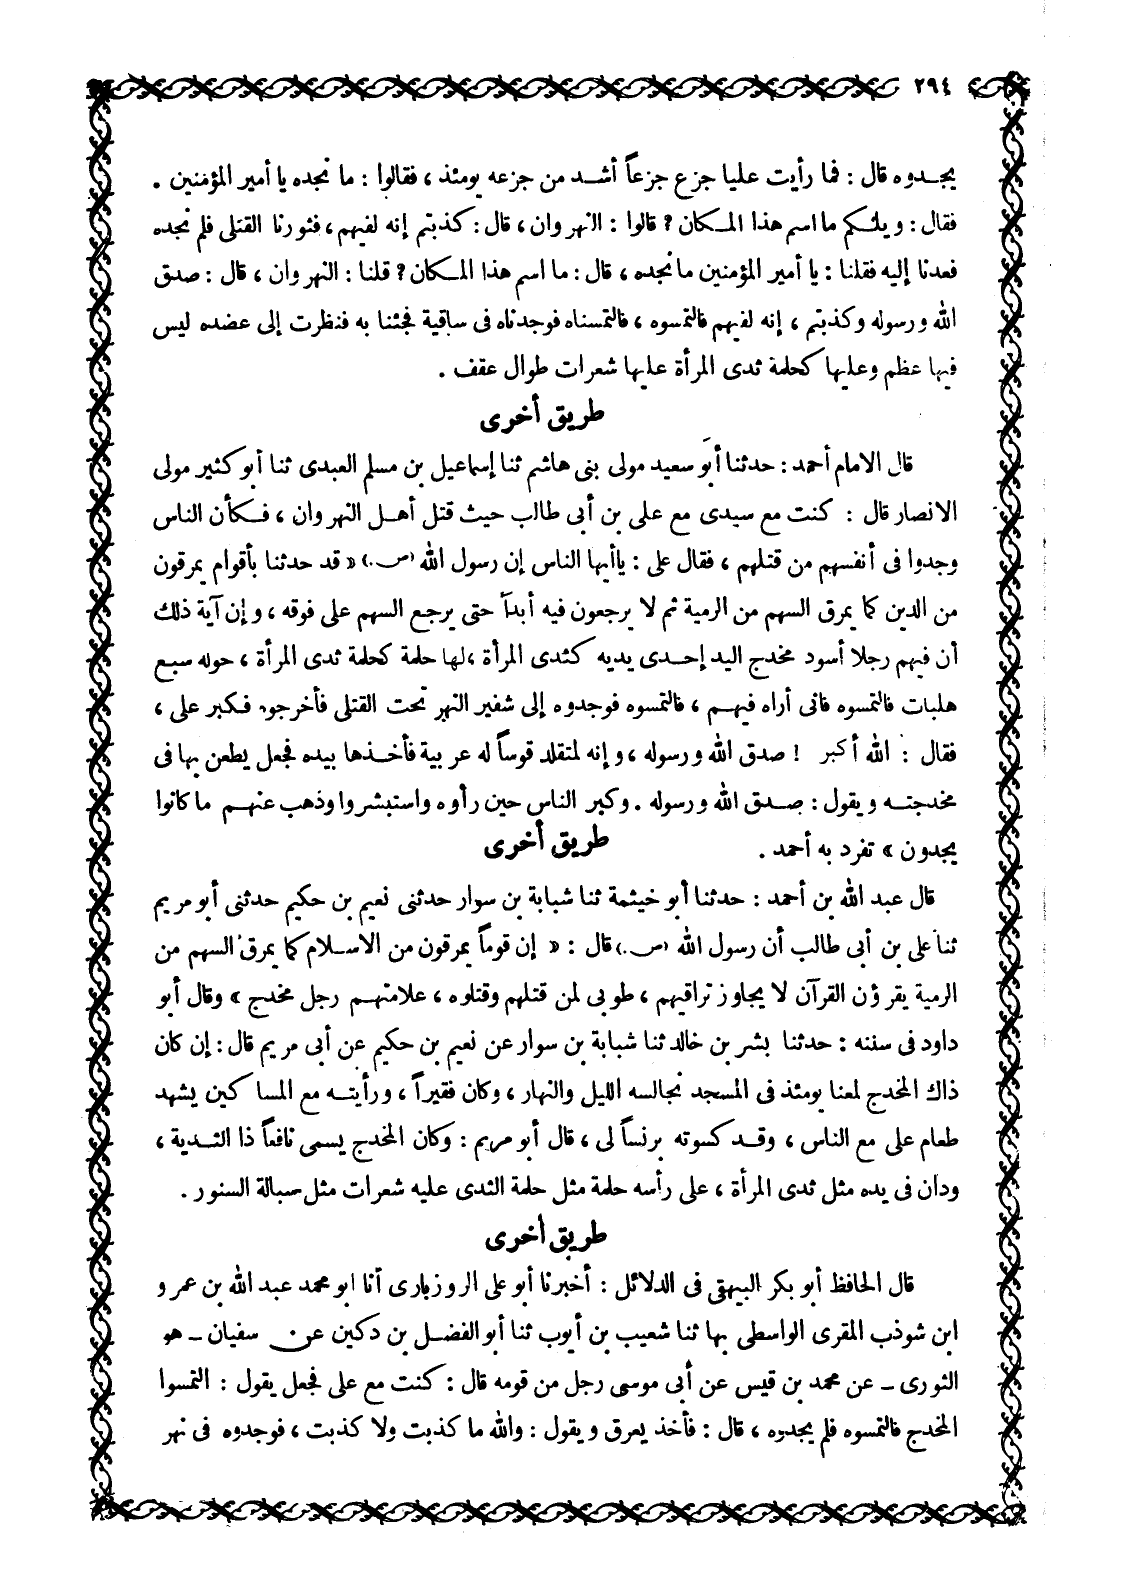 ٢٩٤
يجدوه قال : فما رأيت عليا جزع جزعاً أشد من جزعه يومئذ ، فقالوا : ما نجده يا أمير المؤمنين .
فقال : ويلكم ما اسم هذا المكان ؟ قالوا : النهروان ، قال : كذبتم إنه لفيهم ، فثورنا القتلى فلم نجده
فعدنا إليه فقلنا : يا أمير المؤمنين ما نجده ، قال : ما اسم هذا المكان ؟ قلنا : النهروان ، قال : صدق
الله ورسوله وكذبتم ، إنه لفيهم فالتمسوه ، فالتمسناه فوجدناه فى ساقية فجئنا به فنظرت إلى عضده ليس
فيها عظم وعليها كحلمة ثدى المرأة عليها شعرات طوال عقف .
طريق أخرى
قال الامام أحمد : حدثنا أبو سعيد مولى بنى هاشم ثنا إسماعيل بن مسلم العبدى ثنا أبو كثير مولى
الانصار قال : كنت مع سيدى مع على بن أبى طالب حيث قتل أهل النهروان ، فكأن الناس
وجدوا فى أنفسهم من قتلهم ، فقال على : ياأيها الناس إن رسول الله (ص.) « قد حدثنا بأقوام يمرقون
من الدين كما يمرق السهم من الرمية ثم لا يرجعون فيه أبداً حتى يرجع السهم على فوقه ، وإن آية ذلك
أن فيهم رجلا أسود مخدج اليد إحدى يديه كثدى المرأة ،لها حلمة كحلمة ثدى المرأة ، حوله سبع
هلبات فالتمسوه فانى أراه فيهم ، فالتمسوه فوجدوه إلى شفير النهر تحت القتلى فأخرجوه فكبر على ،
فقال : الله أكبر ! صدق الله ورسوله ، وإنه لمتقلد قوساً له عربية فأخذها بيده فجعل يطعن بها فى
مخدجته ويقول : صدق الله ورسوله . وكبر الناس حين رأوه واستبشروا وذهب عنهم ما كانوا
يجدون » تفرد به أحمد .
طريق أخرى
قال عبد الله بن أحمد : حدثنا أبو خيثمة ثنا شبابة بن سوار حدثنى نعيم بن حكيم حدثنى أبو مريم
ثنا على بن أبى طالب أن رسول الله (ص.) قال : « إن قوماً يمرقون من الاسلام كما يمرق السهم من
الرمية يقرؤن القرآن لا يجاوز تراقيهم ، طوبى لمن قتلهم وقتلوه ، علامتهم رجل مخدج » وقال أبو
داود فى سننه : حدثنا بشر بن خالد ثنا شبابة بن سوار عن نعيم بن حكيم عن أبى مريم قال : إن كان
ذاك المخدج لمعنا يومئذ فى المسجد نجالسه الليل والنهار ، وكان فقيراً ، ورأيته مع المساكين يشهد
طعام على مع الناس ، وقد كسوته برنساً لى ، قال أبو مريم : وكان المخدج يسمى نافعاً ذا الثدية ،
ودان فى يده مثل ثدى المرأة ، على رأسه حلمة مثل حلمة الثدى عليه شعرات مثل سبالة السنور .
طريق أخرى
قال الحافظ أبو بكر البيهقى فى الدلائل : أخبرنا أبو على الروزبارى أنا ابو محمد عبد الله بن عمرو
ابن شوذب المقرى الواسطى بها ثنا شعيب بن أيوب ثنا أبو الفضل بن دكين عن سفيان ـ هو
الثورى ـ عن محمد بن قيس عن أبى موسى رجل من قومه قال : كنت مع على فجعل يقول : التمسوا
المخدج فالتمسوه فلم يجدوه ، قال : فأخذ يعرق ويقول : والله ما كذبت ولا كذبت ، فوجدوه فى نهر